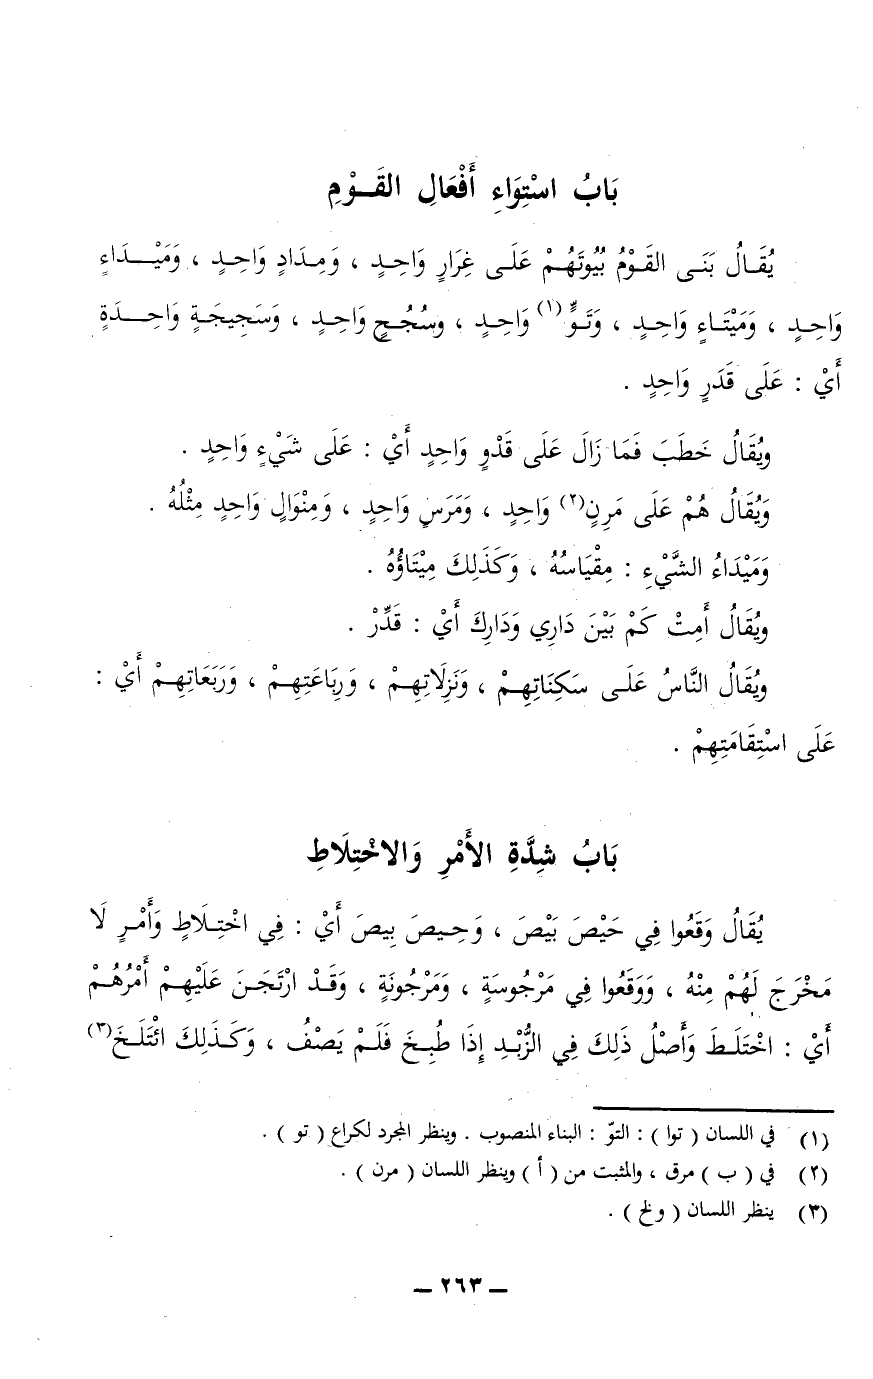 بَابُ اسْتِوَاءِ أَفْعَالِ القَوْمِ
يُقَالُ بَنَى القَوْمُ بُيُوتَهُمْ عَلَى غِرَارٍ وَاحِدٍ ، وَمِدَادٍ وَاحِدٍ ، وَمَيْدَاءٍ
وَاحِدٍ ، وَمَيْتَاءٍ وَاحِدٍ ، وَتَوٍّ(١) وَاحِدٍ ، وسُجُحٍ وَاحِدٍ ، وَسَجِيحَةٍ وَاحِدَةٍ
أَيْ : عَلَى قَدَرٍ وَاحِدٍ .
ويُقَالُ خَطَبَ فَمَا زَالَ عَلَى قَدْوٍ وَاحِدٍ أَيْ : عَلَى شَيْءٍ وَاحِدٍ .
وَيُقَالُ هُمْ عَلَى مَرِنٍ(٢) وَاحِدٍ ، وَمَرَسٍ وَاحِدٍ ، وَمِنْوَالٍ وَاحِدٍ مِثْلُهُ .
وَمَيْدَاءُ الشَّيْءِ : مِقْيَاسُهُ ، وَكَذَلِكَ مِيْتَاؤُهُ .
ويُقَالُ أَمِتْ كَمْ بَيْنَ دَارِي وَدَارِكَ أَيْ : قَدِّرْ .
ويُقَالُ النَّاسُ عَلَى سَكِنَاتِهِمْ ، وَنَزِلَاتِهِمْ ، وَرِبَاعَتِهِمْ ، وَرَبَعَاتِهِمْ أَيْ :
عَلَى اسْتِقَامَتِهِمْ .
بَابُ شِدَّةِ الأَمْرِ وَالاخْتِلَاطِ
يُقَالُ وَقَعُوا فِي حَيْصَ بَيْصَ ، وَحِيصَ بِيصَ أَيْ : فِي اخْتِلَاطٍ وَأَمْرٍ لَا
مَخْرَجَ لَهُمْ مِنْهُ ، وَوَقَعُوا فِي مَرْجُوسَةٍ ، وَمَرْجُونَةٍ ، وَقَدْ ارْتَجَنَ عَلَيْهِمْ أَمْرُهُمْ
أَيْ : اخْتَلَطَ وَأَصْلُ ذَلِكَ فِي الزُّبْدِ إِذَا طُبِخَ فَلَمْ يَصْفُ ، وَكَذَلِكَ ائْتَلَخَ(٣)
(١) في اللسان ( توا ) : التوّ : البناء المنصوب . وينظر المجرد لكراع ( تو ) .
(٢) في ( ب ) مرق ، والمثبت من ( أ ) وينظر اللسان ( مرن ) .
(٣) ينظر اللسان ( ولخ ) .
— ٢٦٣ —